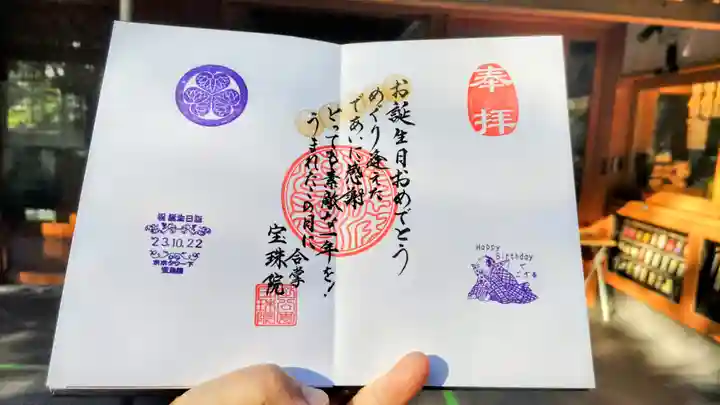 奉拝
お誕生日おめでとう
めぐり逢えた
であいに感謝
とっても素敵な一年を!
うまれたこの月に
合掌
宝珠院
Happy
Birthday
で
ござる
祝 誕生日詣
23.10.22
東京タワー下
宝珠院